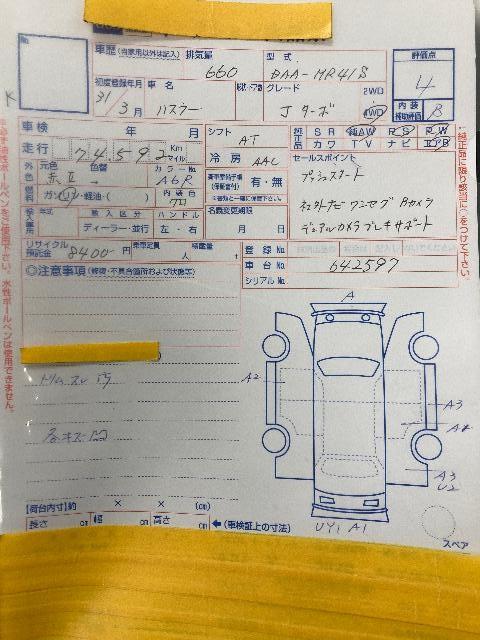 車歴 (自家用以外は記入) 排気量 660 型式 DAA-MR41S 評価点 4
初度登録年月 31/3月 車名 ハスラー ドア形状 グレード Jターボ 2WD 4WD 内装補助評価 B
車検 年 月 シフト AT 純正品 SR AW PS PW
走行 74,592 Km マイル 冷房 AAC カワ TV ナビ エアB
外色 元色 赤II 色替 カラーNo. A6R 有・無 セールスポイント
燃料 ガソリン・軽油・( ) 内装色 プッシュスタート
輸入区分 ハンドル 名義変更期限
ディーラー・並行 左・右 月 日 デュアルカメラブレーキサポート
リサイクル預託金 8400円 乗車定員 人 積載量 t 登録No.
車台No. 642597
シリアルNo.
◎注意事項 (修復・不具合箇所および状態等)
トリムスレ汚
各キズ凹
A
A2
A3
A3
U2
UY1 A1
スペア
【荷台内寸】約 × × (cm)
長さ cm 幅 cm 高さ cm ←(車検証上の寸法)
必ず油性ボールペンをご使用下さい。水性ボールペンは使用できません。
↑純正品に限り該当に○をつけて下さい。